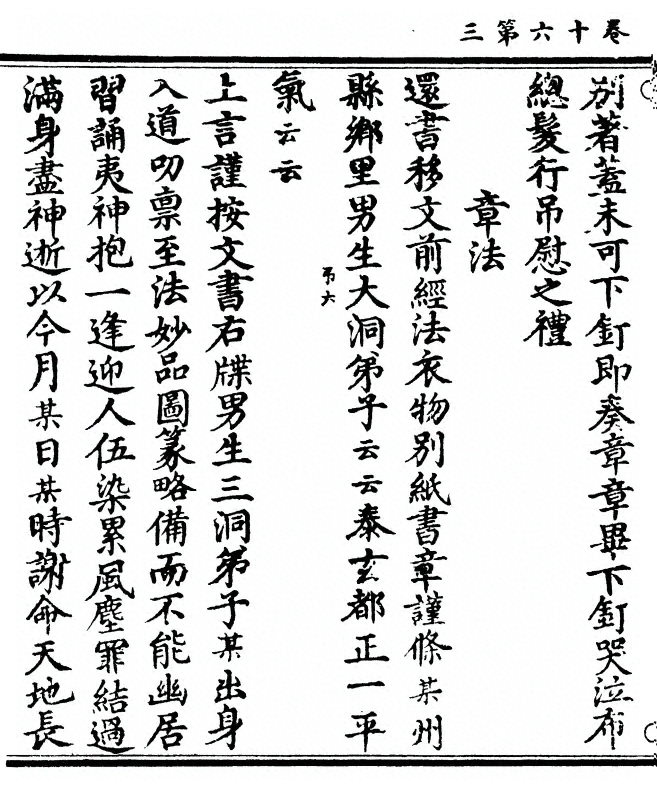 卷十六第三
別著蓋未可下釘即奏章章畢下釘哭泣布
總髮行吊慰之禮
章法
還書移文前經法衣物別紙書章謹條某州
縣鄉里男生大洞弟子云云泰玄都正一平
吊六
氣云云
上言謹按文書右牒男生三洞弟子某出身
入道叨稟至法妙品圖篆略備而不能幽居
習誦夷神抱一逢迎人伍染累風塵罪結過
滿身盡神逝以今月某日某時謝命天地長